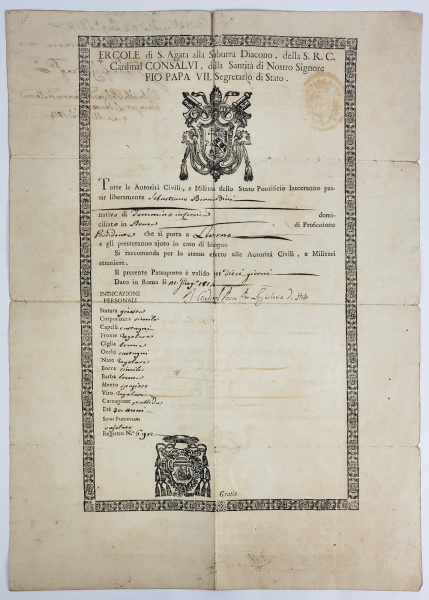 ERCOLE di S. Agata alla Suburra Diacono, della S. R. C.
Cardinal CONSALVI, della Santità di Nostro Signore
PIO PAPA VII. Segretario di Stato.
Tutte le Autorità Civili, e Militari dello Stato Pontificio lasceranno pas-
sar liberamente Sebastiano Bernardini
nativo di domi-
ciliato in Roma di Professione
Possidente che si porta a Livorno
e gli presteranno ajuto in caso di bisogno
Si raccomanda per lo stesso effetto alle Autorità Civili, e Militari
straniere.
Il presente Passaporto è valido per dieci giorni
Dato in Roma li 1814
INDICAZIONI
PERSONALI
Statura giusta
Corporatura simile
Capelli castagni
Fronte regolare
Ciglia brune
Occhj castagni
Naso regolare
Bocca simile
Barba bruna
Mento spazioso
Viso regolare
Carnagione pallida
Età 30 anni
Segni Particolari
Registro N.
Gratis